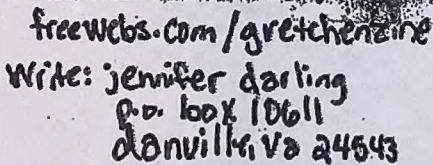 freewebs.com/gretchenzine
write: jennifer darling
p.o. box 10611
danville, va 24543